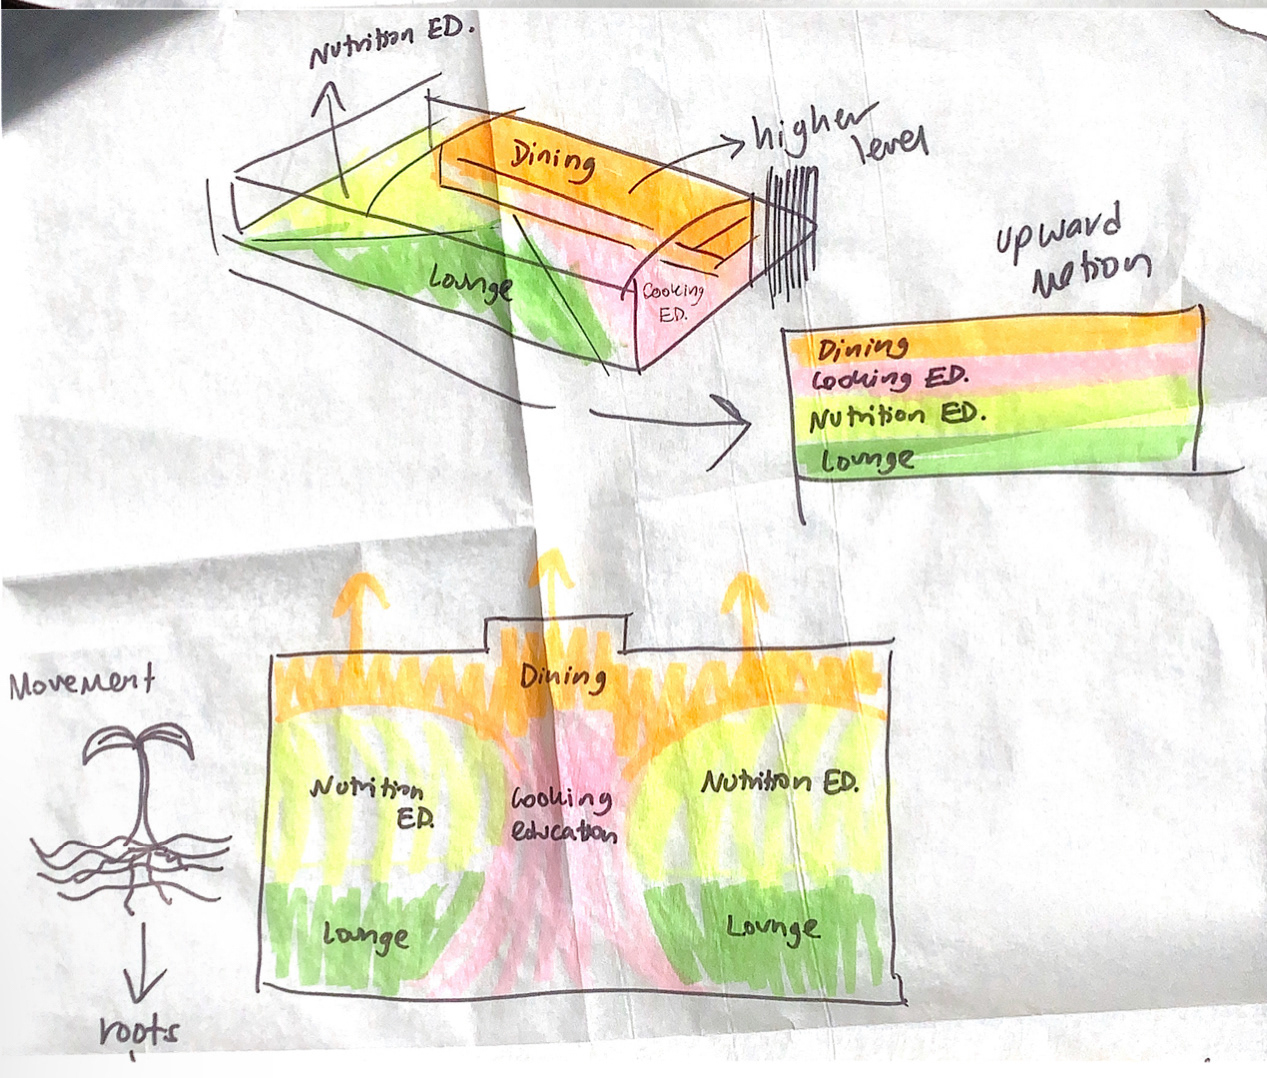 Nutrition ED.
Dining
higher
level
Lounge
Cooking
ED.
upward
Motion
Dining
Cooking ED.
Nutrition ED.
Lounge
Movement
Dining
Nutrition
ED.
Cooking
education
Nutrition ED.
Lounge
Lounge
roots